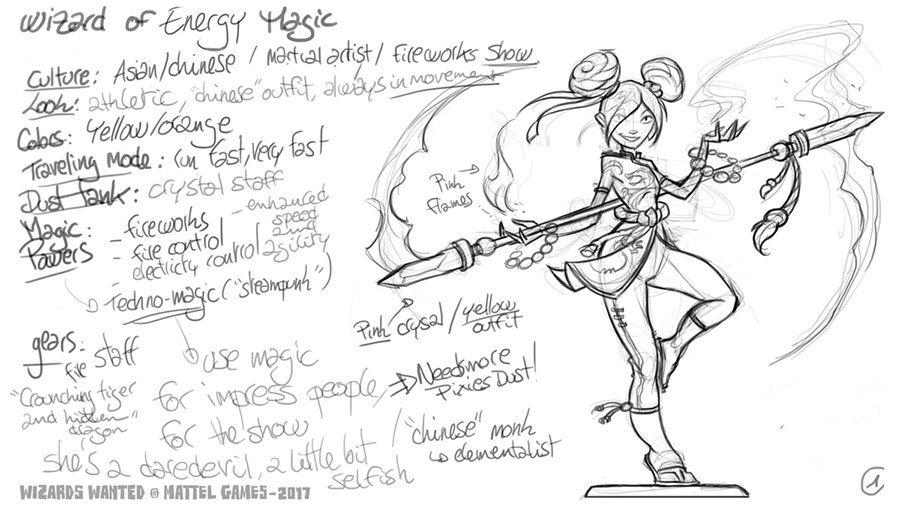 Wizard of Energy Magic
Culture: Asian/chinese / martial artist / Fireworks Show
Look: athletic, "chinese" outfit, always in movement
Colors: Yellow/orange
Traveling Mode: run fast, very fast
Dust Tank: crystal staff
Magic Powers:
- fireworks
- fire control
- electricity control
- enhanced speed and agility
Techno-magic ("steampunk")
gears: fire staff
"Crounching tiger and hidden dragon"
use magic
for impress people,
for the show
she's a daredevil, a little bit selfish
Pink flames
Pink crysal / Yellow outfit
⇒ Needs more Pixies Dust!
/ "chinese" monk
↳ elementalist
WIZARDS WANTED @ MATTEL GAMES-2017
1